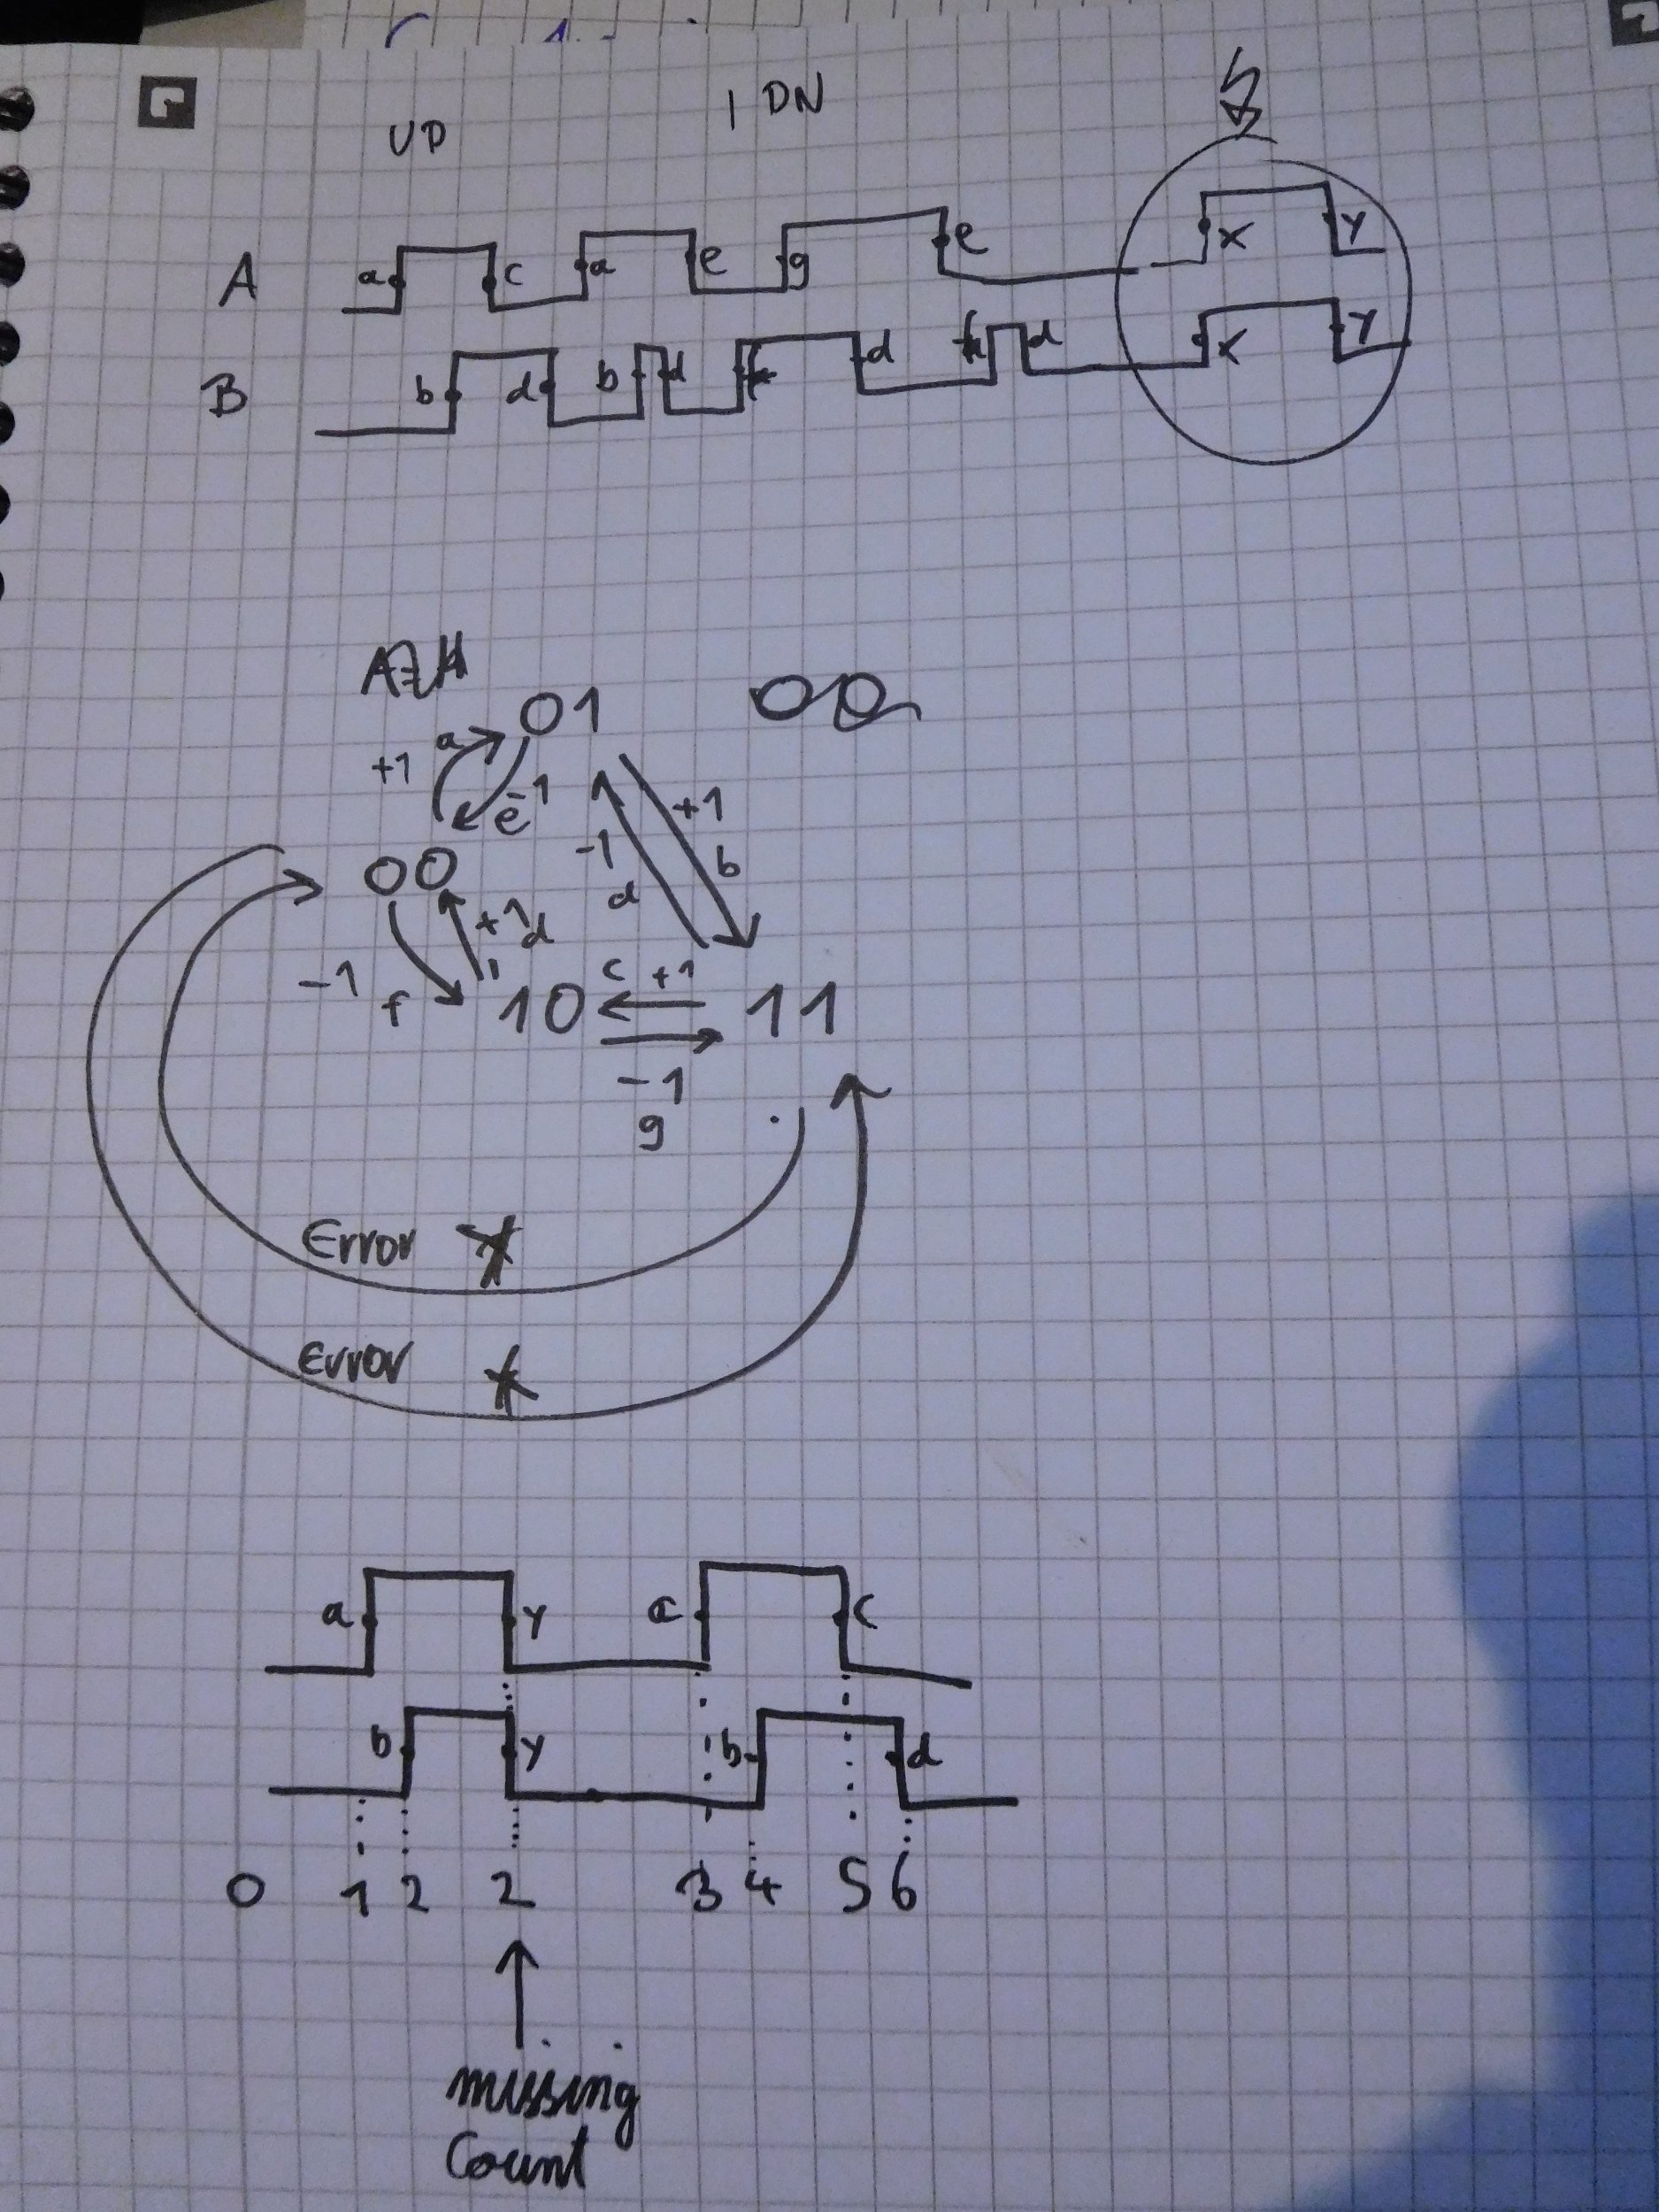 UP
| DN
A a c a e g e x y
B b d b d d d x y
01
+1 a
e -1
+1
-1 b
d
00
+1 d
-1 f
10
c +1
11
-1
g
Error
Error
a y c
b y b d
0 1 2 2 3 4 5 6
missing
Count